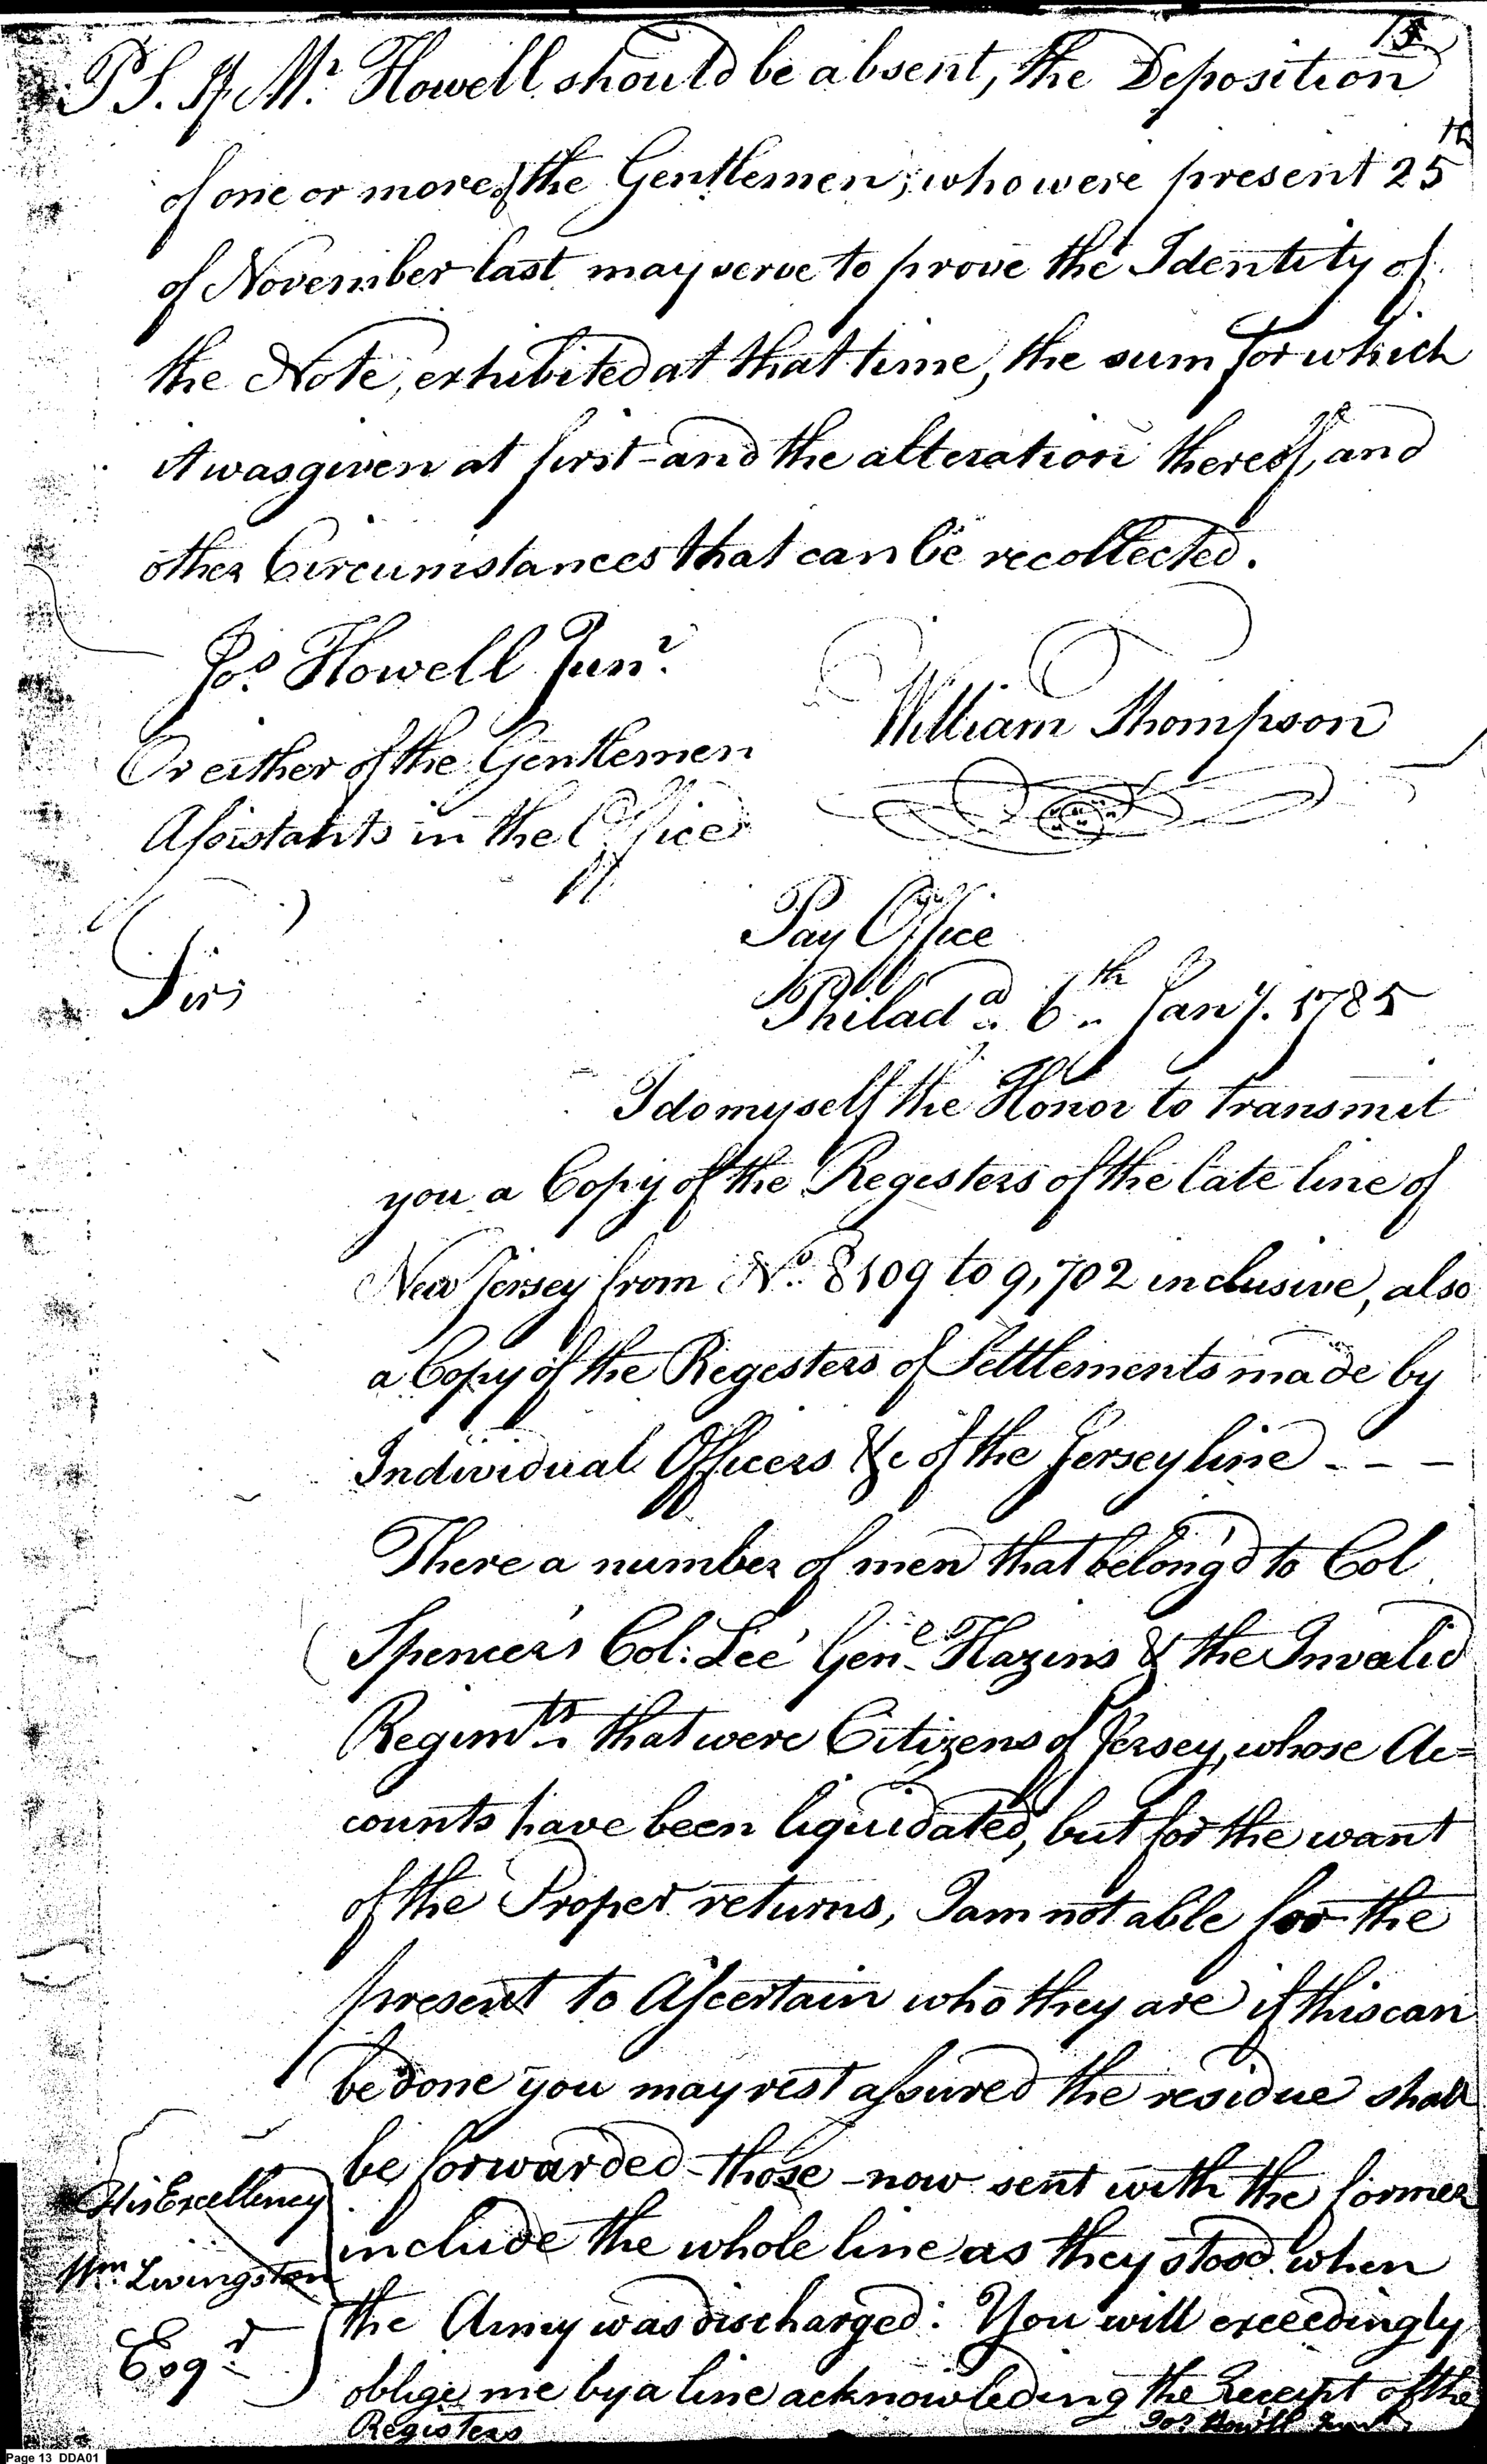 13
PS. If Mr. Howell should be absent, the Deposition
of one or more of the Gentlemen, who were present 25th
of November last may serve to prove the Identity of
the Note, exhibited at that time, the sum for which
it was given at first - and the alteration thereof, and
other Circumstances that can be recollected.
Jos. Howell Junr.
William Thompson
Or either of the Gentlemen
Assistants in the Office
Pay Office
Philada. 6th Jany. 1785
Sir,
I do myself the Honor to transmit
you a Copy of the Registers of the late line of
New Jersey from No. 8109 to 9,702 inclusive, also
a Copy of the Regesters of Settlements made by
Individual Officers &c of the Jersey line - - -
There a number of men that belong'd to Col
Spencer's Col: Lee' Genl. Hazins & the Invalid
Regimts. that were Citizens of Jersey, whose Ac=
counts have been liquidated, but for the want
of the Proper returns, I am not able for the
present to Ascertain who they are if this can
be done you may rest assured the residue shall
be forwarded - those now sent with the former
include the whole line as they stood when
the Army was discharged: You will exceedingly
oblige me by a line acknowledeing the Receipt of the
Registers
Jos. Howell Junr.
His Excellency
Wm. Livingston
Esqr.
Page 13 DDA01